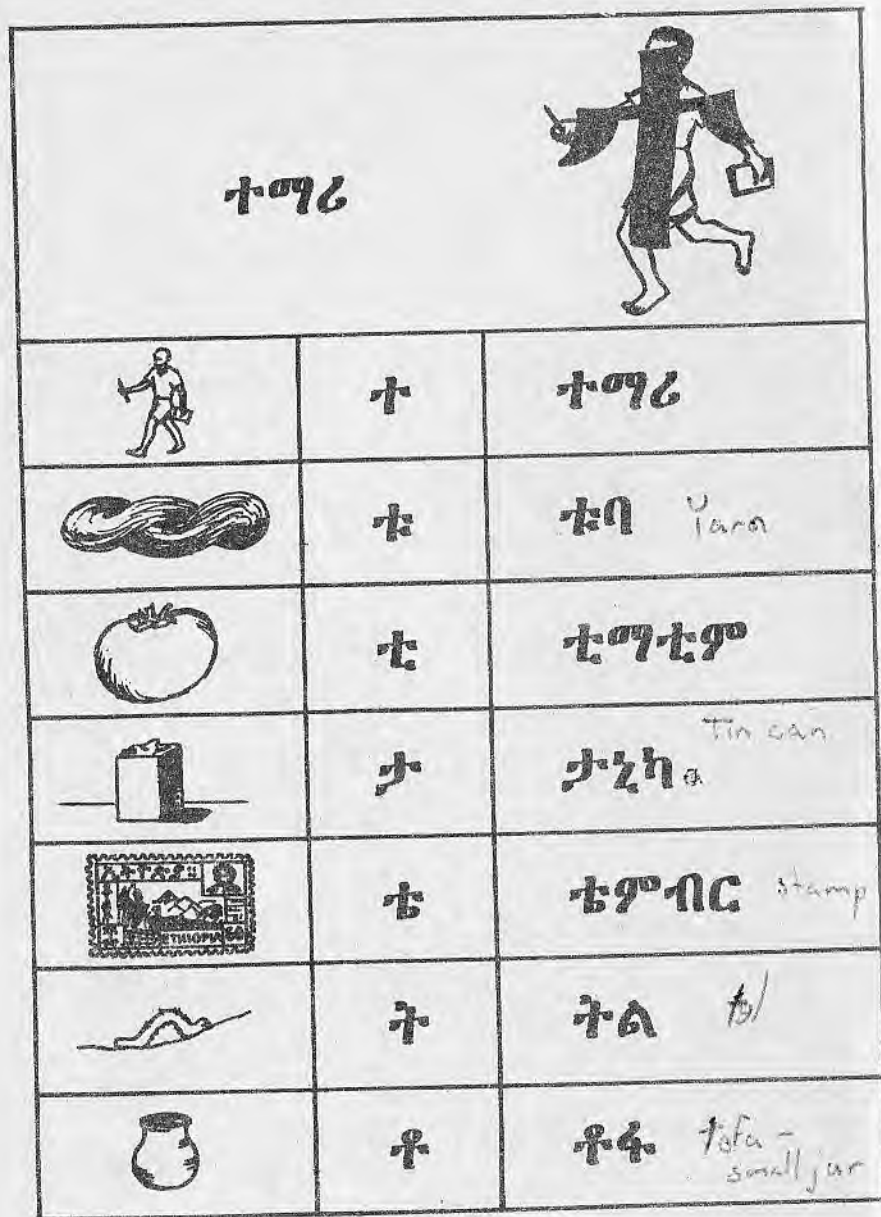 ተማሪ
ተ ተማሪ
ቱ ቱባ Yarn
ቲ ቲማቲም
ታ ታኒካ Tin can
ኢትዮጵያ ETHIOPIA
ቴ ቴምብር stamp
ት ትል
ቶ ቶፋ tofa -
small jar